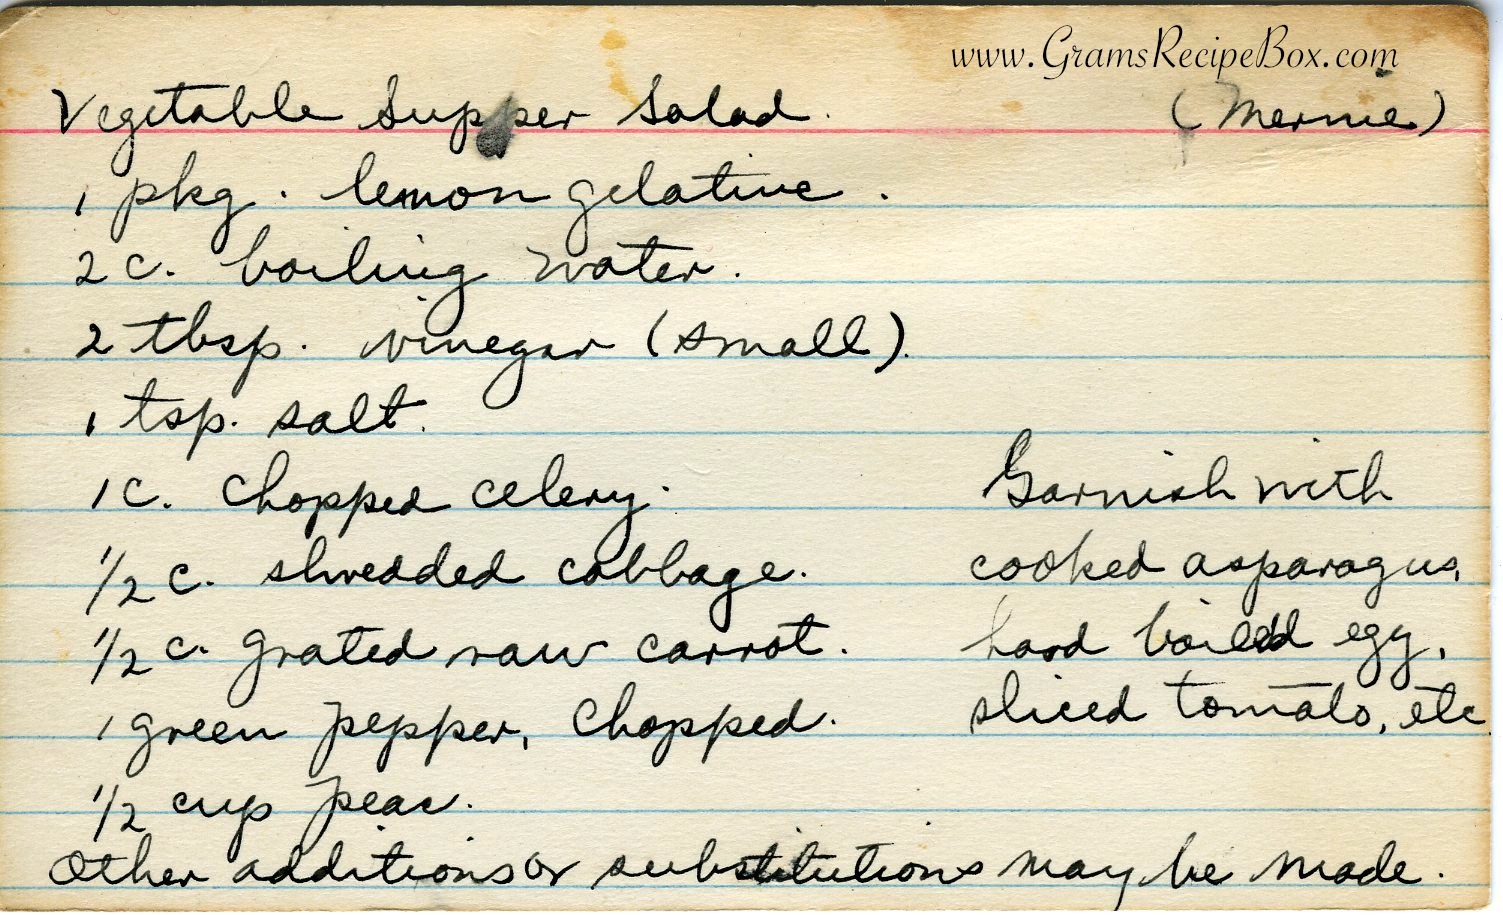 www.GramsRecipeBox.com
Vegetable Supper Salad. (Mernie)
1 pkg. lemon gelatine.
2 c. boiling water.
2 tbsp. vinegar (small).
1 tsp. salt.
1 c. chopped celery.
1/2 c. shredded cabbage.
1/2 c. grated raw carrot.
1 green pepper, chopped.
1/2 cup peas.
Garnish with
cooked asparagus,
hard boiled egg,
sliced tomato, etc.
Other additions or substitutions may be made.